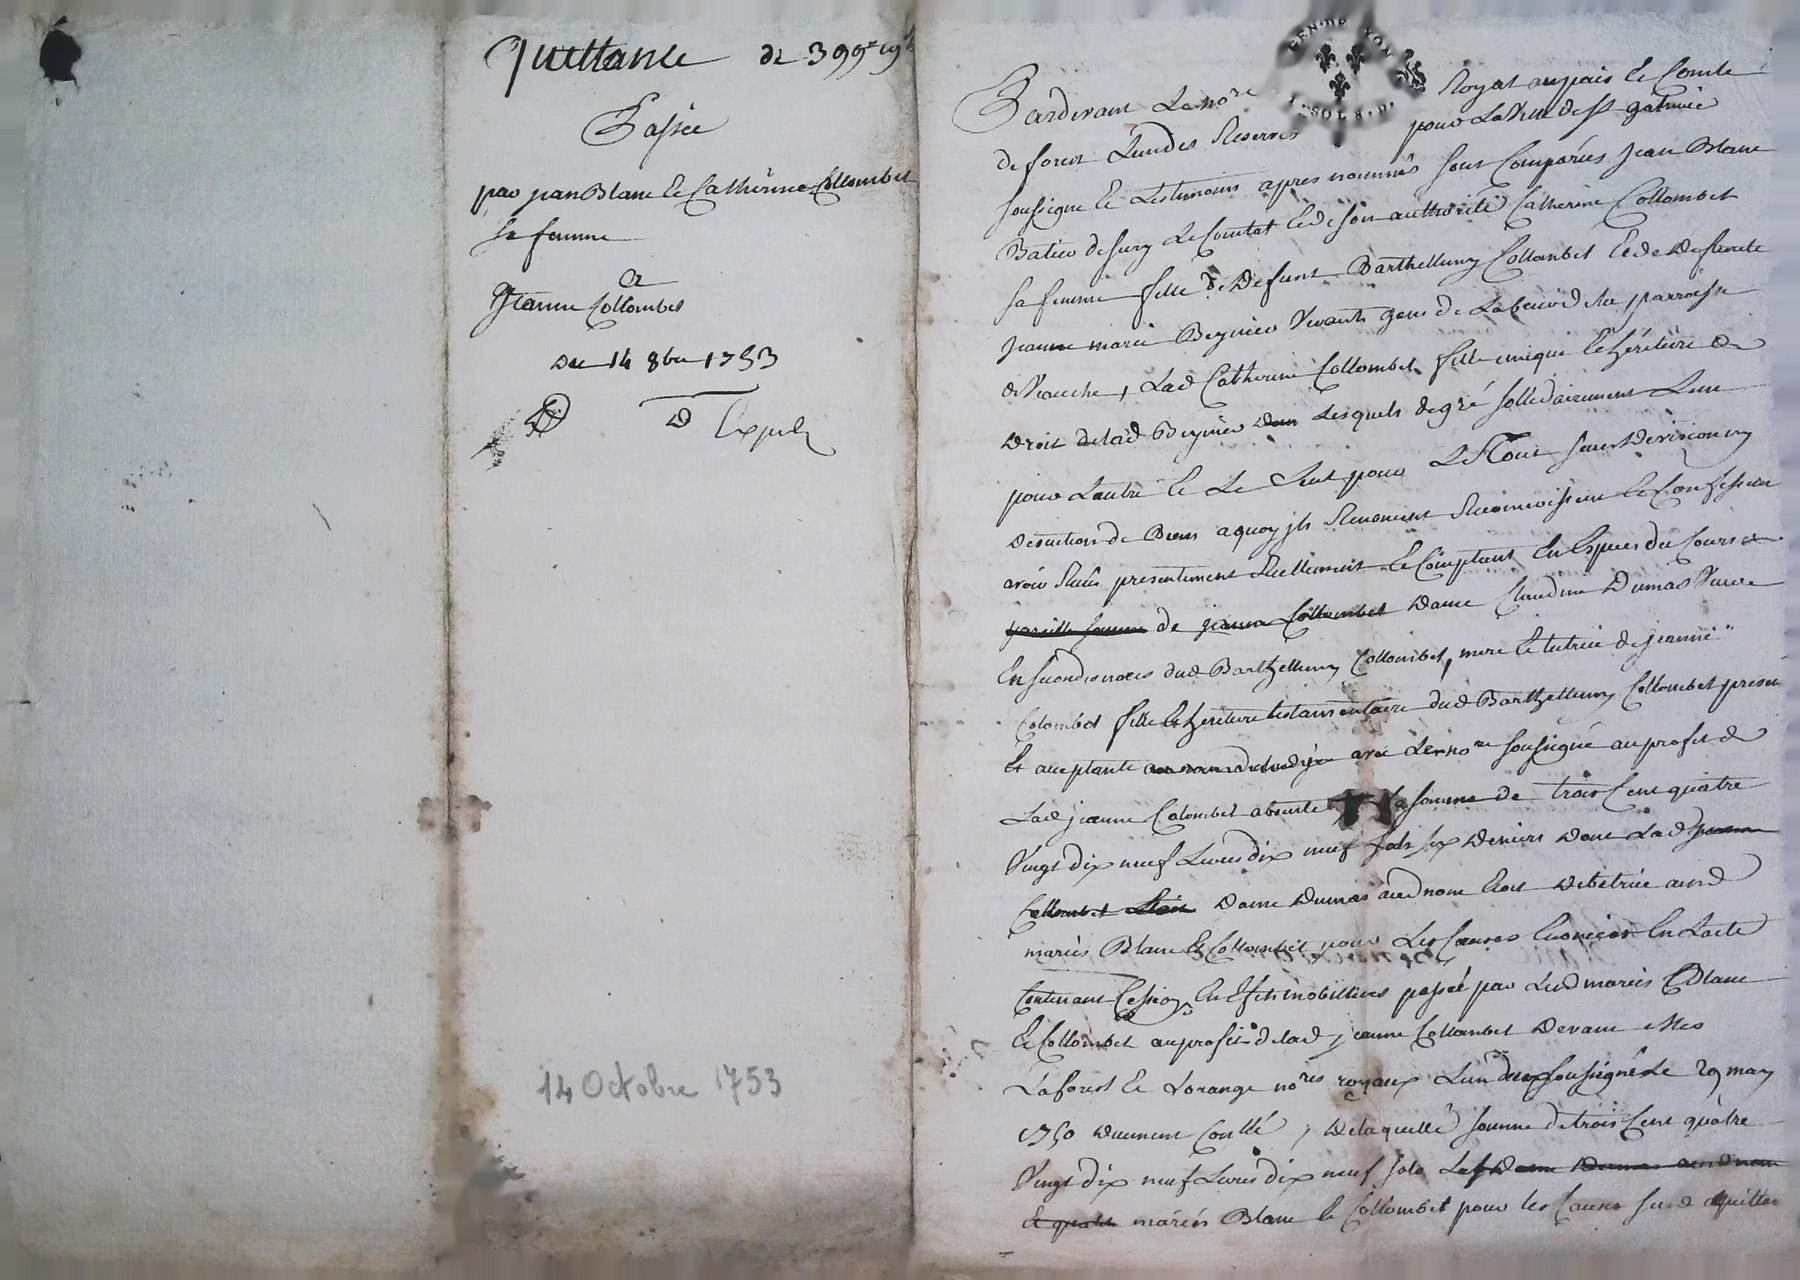 Quittance de 399# 19s
Passée
par jean Blanc & Catherine Collombet
sa femme
a
Jeanne Collombet
du 14 8bre 1753
D Expedie
14 Octobre 1753
GEN. DE LYON
1. SOL 8. D.
Pardevant Le nore Royal au pais & Comté
de forest Lun des Reservés pour La Ville de St galmier
soussigné & Les temoins apres nommés sont Comparus Jean Blanc
Batier de Sury Le Comtat & de son authorité Catherine Collombet
sa femme fille de Defunt Barthellemy Collombet & de Deffunte
Jeanne marie Beynieu Vivants gens de Labeur de la parroisse
de Veauche, Lad Catherine Collombet fille unique & heritiere de
Droit de lad Beynieu Lesquels de gré sollidairement Lun
pour Lautre & Le Seul pour Le Tout sans Division ny
Discution de Biens a quoy ils Renoncent Reconnoissent & Confessent
avoir Receu presentement Reellement & Comptant En Espèces du Cours
pareille somme de jeanne Collombet Dame Claudine Dumas Veuve
En secondes noces dud Barthellemy Collombet, mere & tutrice de jeanne
Colombet fille & heritiere testamentaire dud Barthellemy Collombet presente
& acceptante avec Led nore soussigné au profit de
Lad jeanne Colombet absente La somme de trois Cent quatre
Vingt dix neuf Livres dix neuf sols six Deniers Dont Lad jeanne
Collombet Etoit Dame Dumas aud nom Est Debitrice aux d
mariés Blanc & Collombet pour Les Causes Enoncées En Lacte
Contenant Cession En Effets mobilliers passée par Lesd mariés Blanc
& Collombet au profit de lad jeanne Collombet Devant Mes
Laforest & Lorange nores royaux Lun deux soussigné Le 29 may
1750 Duement Conllé, De laquelle somme de trois Cent quatre
Vingt dix neuf Livres dix neuf sols Lad Dame Dumas aud nom
& qualité mariés Blanc & Collombet pour les Causes susd quitten